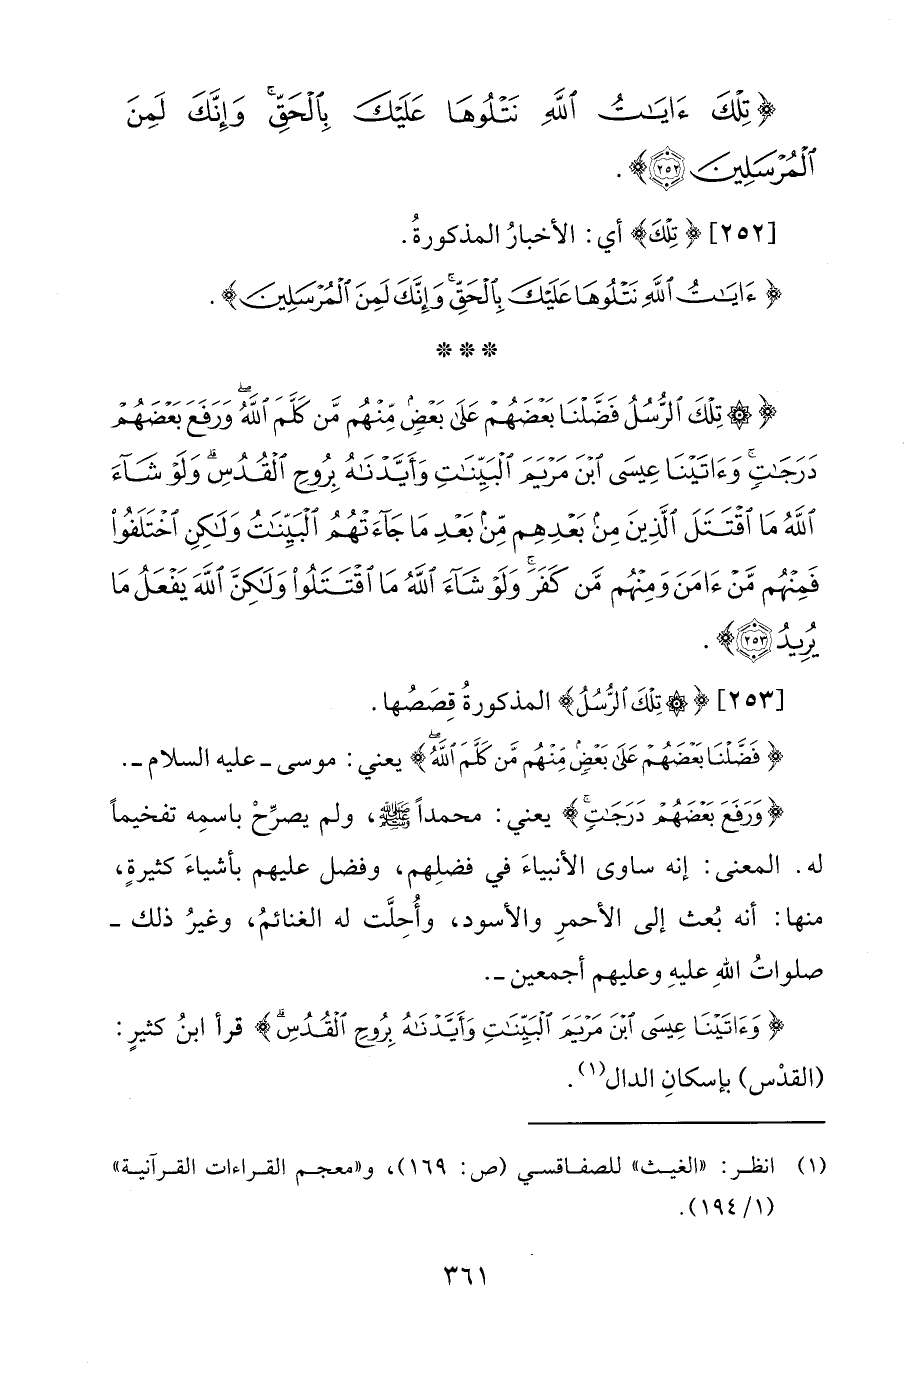 ﴿تِلْكَ ءَايَٰتُ ٱللَّهِ نَتْلُوهَا عَلَيْكَ بِٱلْحَقِّ ۚ وَإِنَّكَ لَمِنَ
ٱلْمُرْسَلِينَ ۝٢٥٢﴾.
[٢٥٢] ﴿تِلْكَ﴾ أي: الأخبارُ المذكورةُ.
﴿ءَايَٰتُ ٱللَّهِ نَتْلُوهَا عَلَيْكَ بِٱلْحَقِّ ۚ وَإِنَّكَ لَمِنَ ٱلْمُرْسَلِينَ﴾.
* * *
﴿۞ تِلْكَ ٱلرُّسُلُ فَضَّلْنَا بَعْضَهُمْ عَلَىٰ بَعْضٍ ۘ مِّنْهُم مَّن كَلَّمَ ٱللَّهُ ۖ وَرَفَعَ بَعْضَهُمْ
دَرَجَٰتٍ ۚ وَءَاتَيْنَا عِيسَى ٱبْنَ مَرْيَمَ ٱلْبَيِّنَٰتِ وَأَيَّدْنَٰهُ بِرُوحِ ٱلْقُدُسِ ۗ وَلَوْ شَآءَ
ٱللَّهُ مَا ٱقْتَتَلَ ٱلَّذِينَ مِنۢ بَعْدِهِم مِّنۢ بَعْدِ مَا جَآءَتْهُمُ ٱلْبَيِّنَٰتُ وَلَٰكِنِ ٱخْتَلَفُوا۟
فَمِنْهُم مَّنْ ءَامَنَ وَمِنْهُم مَّن كَفَرَ ۚ وَلَوْ شَآءَ ٱللَّهُ مَا ٱقْتَتَلُوا۟ وَلَٰكِنَّ ٱللَّهَ يَفْعَلُ مَا
يُرِيدُ ۝٢٥٣﴾.
[٢٥٣] ﴿۞ تِلْكَ ٱلرُّسُلُ﴾ المذكورةُ قِصَصُها.
﴿فَضَّلْنَا بَعْضَهُمْ عَلَىٰ بَعْضٍ ۘ مِّنْهُم مَّن كَلَّمَ ٱللَّهُ ۖ﴾ يعني: موسى ـ عليه السلام ـ.
﴿وَرَفَعَ بَعْضَهُمْ دَرَجَٰتٍ ۚ﴾ يعني: محمداً ﷺ، ولم يصرِّحْ باسمِه تفخيماً
له. المعنى: إنه ساوى الأنبياءَ في فضلِهم، وفضل عليهم بأشياءَ كثيرةٍ،
منها: أنه بُعث إلى الأحمرِ والأسود، وأُحِلَّت له الغنائمُ، وغيرُ ذلك ـ
صلواتُ اللهِ عليهِ وعليهم أجمعين ـ.
﴿وَءَاتَيْنَا عِيسَى ٱبْنَ مَرْيَمَ ٱلْبَيِّنَٰتِ وَأَيَّدْنَٰهُ بِرُوحِ ٱلْقُدُسِ ۗ﴾ قرأ ابنُ كثيرٍ:
(القدْس) بإسكانِ الدال(١).
(١) انظر: «الغيث» للصفاقسي (ص: ١٦٩)، و«معجم القراءات القرآنية»
(١/ ١٩٤).
٣٦١